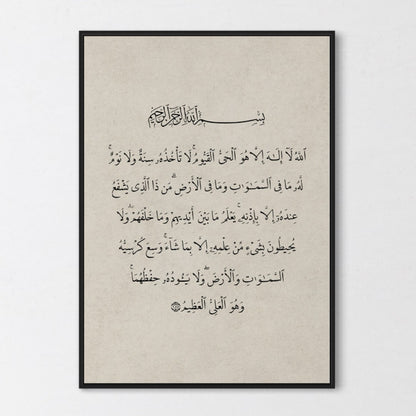 بِسْمِ ٱللَّهِ ٱلرَّحْمَٰنِ ٱلرَّحِيمِ
ٱللَّهُ لَآ إِلَٰهَ إِلَّا هُوَ ٱلْحَىُّ ٱلْقَيُّومُ ۚ لَا تَأْخُذُهُۥ سِنَةٌ وَلَا نَوْمٌ ۚ
لَّهُۥ مَا فِى ٱلسَّمَٰوَٰتِ وَمَا فِى ٱلْأَرْضِ ۗ مَن ذَا ٱلَّذِى يَشْفَعُ
عِندَهُۥٓ إِلَّا بِإِذْنِهِۦ ۚ يَعْلَمُ مَا بَيْنَ أَيْدِيهِمْ وَمَا خَلْفَهُمْ ۖ وَلَا
يُحِيطُونَ بِشَىْءٍ مِّنْ عِلْمِهِۦٓ إِلَّا بِمَا شَآءَ ۚ وَسِعَ كُرْسِيُّهُ
ٱلسَّمَٰوَٰتِ وَٱلْأَرْضَ ۖ وَلَا يَـُٔودُهُۥ حِفْظُهُمَا ۚ
وَهُوَ ٱلْعَلِىُّ ٱلْعَظِيمُ